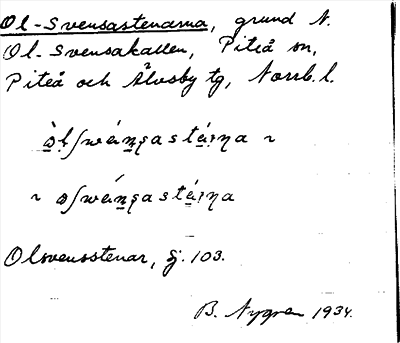 Ol-Svensastenarna, grund N.
Ol-Svensakallen, Piteå sn,
Piteå och Älvsby tg, Norrb. l.
ò̱ḷʃwáṉʂastá̱ıɳa ~
~ ɷʃwáṉʂastá̱ıɳa
Olsvensstenar, Sj. 103.
B. Nygren 1934.